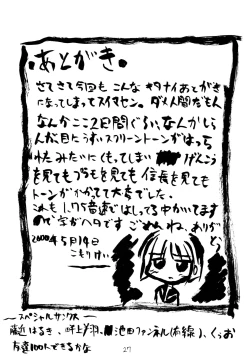 ・あとがき・
さてさて今回もこんなキタナイあとがき
になってしまってスイマセン。ダメ人間だもん
なんかここ2日間ぐらい、なんかしら
んが目にうすいスクリーントーンがはっち
れたみたいにくもってしまい げんこう
を見てもプラモを見ても信長を見ても
トーンがかかって大変でした。
これも トウフ音速ではしってる中かいてます
ので字がヘタです ごめんね、ありがと
2000年5月19日
こもりけい
〜スペシャルサンクス〜
藤近はるき、町上羽、池田ファンネル(赤緑)、くぅお
友達100人できるかな
27